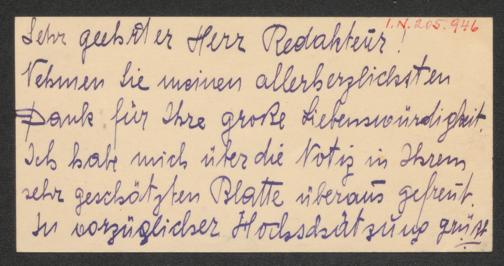 I.N. 205.946
Sehr geehrter Herr Redakteur!
Nehmen Sie meinen allerherzlichsten
Dank für Ihre große Liebenswürdigkeit.
Ich habe mich über die Notiz in Ihrem
sehr geschätzten Blatte überaus gefreut.
In vorzüglicher Hochschätzung grüßt